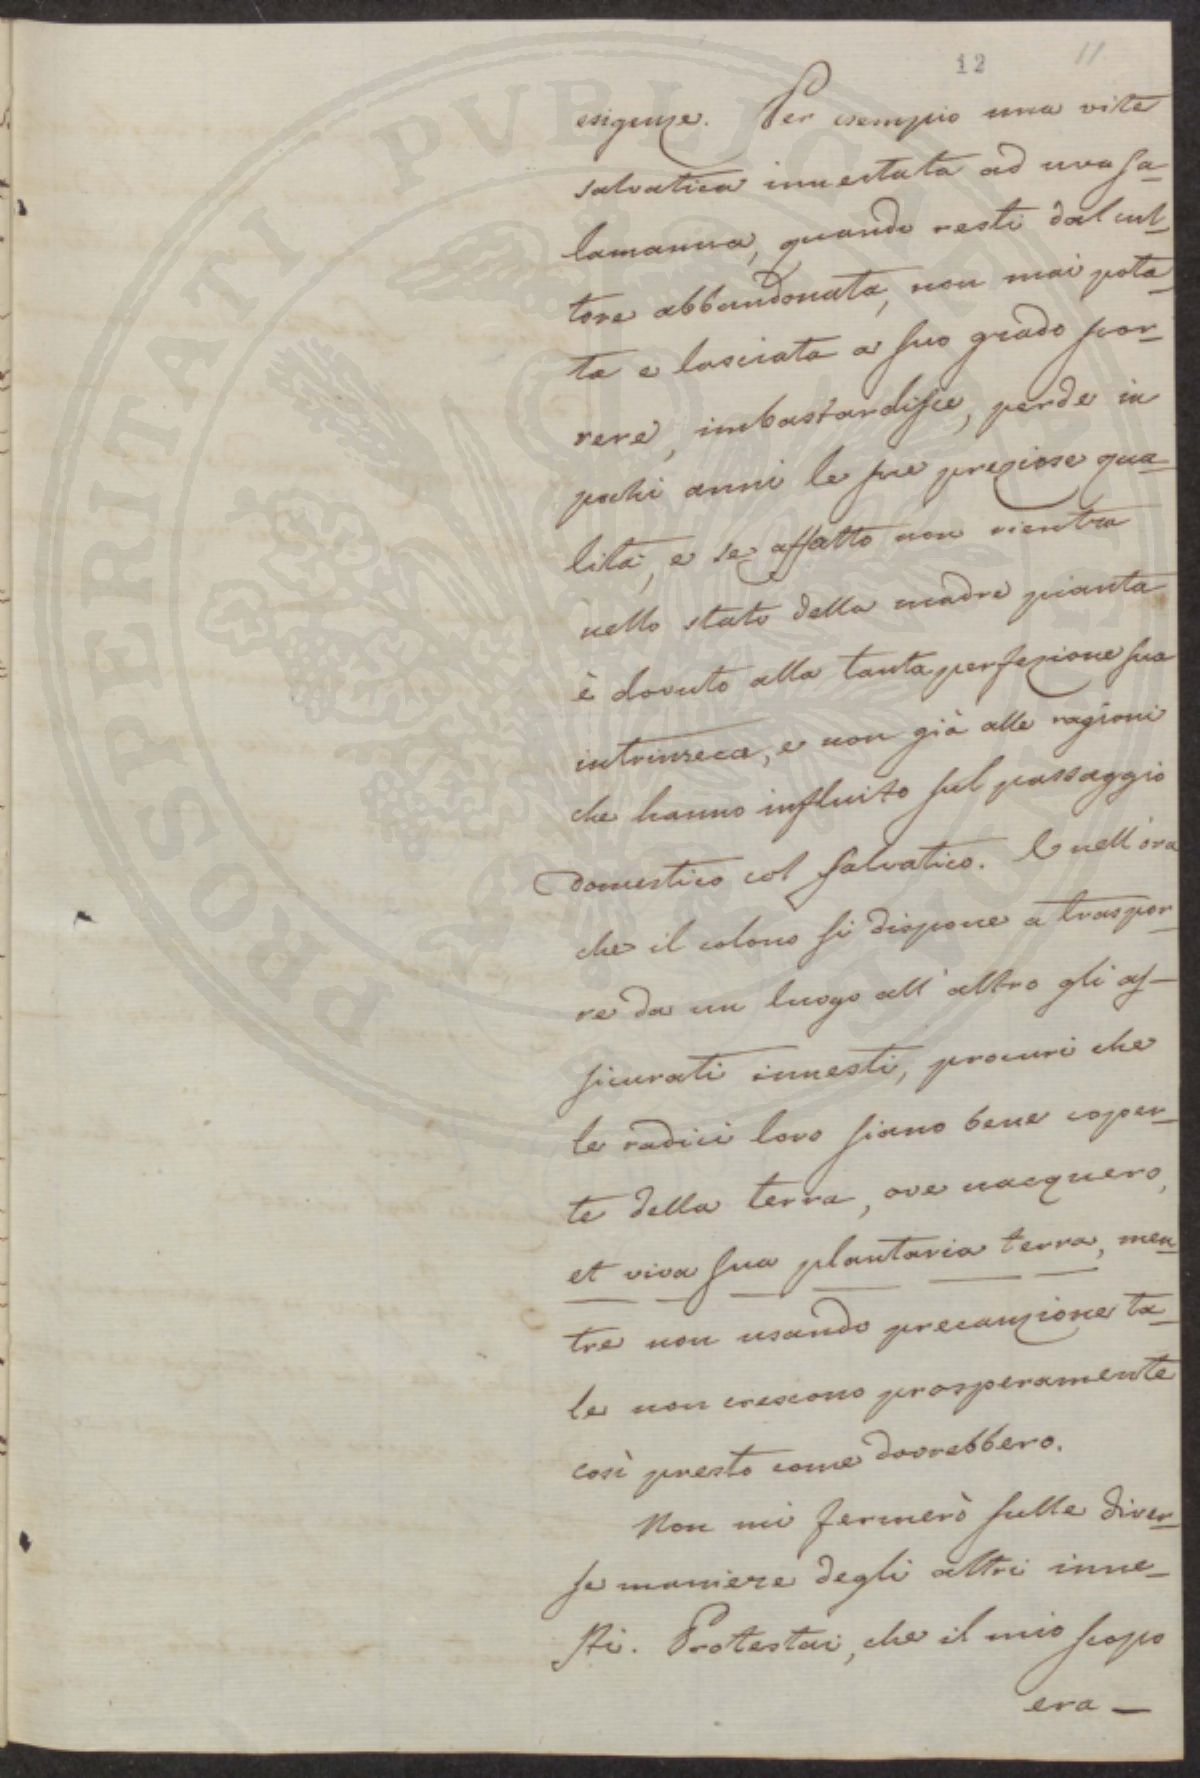 12 11
esigenze. Per esempio una vite
salvatica innestata ad uva sa-
lamanna, quando resti dal cul-
tore abbandonata, non mai pota-
ta e lasciata a suo grado scor-
rere, imbastardisce, perde in
pochi anni le sue preziose qua-
lità, e se affatto non rientra
nello stato della madre pianta
è dovuto alla tanta perfezione sua
intrinseca, e non già alle ragioni
che hanno influito sul passaggio
domestico col salvatico. E nell'ora
che il colono si dispone a traspor-
re da un luogo all'altro gli as-
sicurati innesti, procuri che
le radici loro siano bene coper-
te della terra, ove nacquero,
et viva sua plantaria terra, men-
tre non usando precauzione ta-
le non crescono prosperamente
così presto come dovrebbero.
Non mi fermerò sulle diver-
se maniere degli altri inne-
sti. Protestai, che il mio scopo
era -
PROSPERITATI PVBLICAE